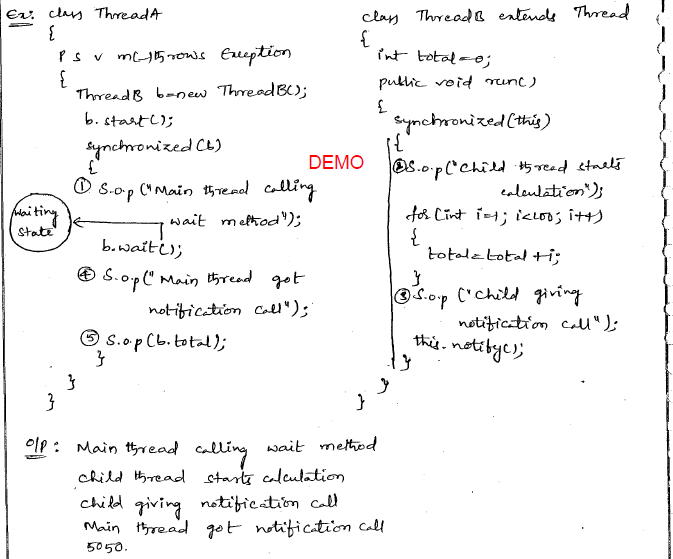 Ex: class ThreadA
{
P s v m(-) throws Exception
{
ThreadB b=new ThreadB();
b.start();
synchronized(b)
{
① S.o.p ("Main thread calling
wait method");
waiting
state
b.wait();
④ S.o.p (" Main thread got
notification call");
⑤ S.o.p (b.total);
}
}
}
DEMO
class ThreadB extends Thread
{
int total=0;
public void run()
{
synchronized(this)
{
② S.o.p ("Child thread starts
calculation");
for (int i=1; i<100; i++)
{
total=total+i;
}
③ S.o.p ("Child giving
notification call");
this.notify();
}
}
}
o/p : Main thread calling wait method
child thread starts calculation
child giving notification call
Main thread got notification call
5050.